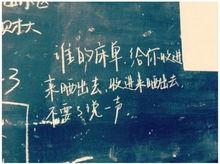 财大
3
谁的床单,给你收进
来晒出去,收进来晒出去,
不要了说一声